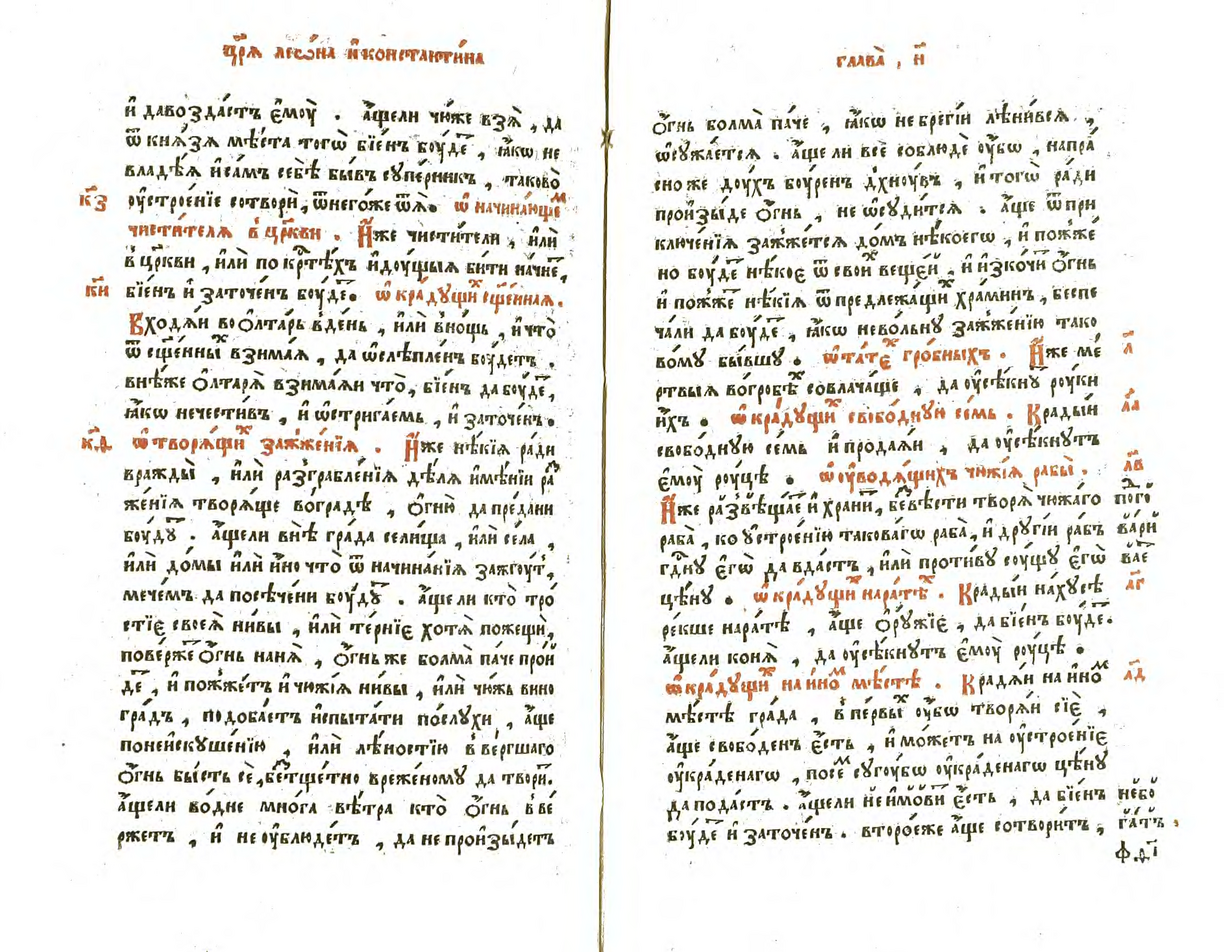 цр҃ѧ леѡ́на и҆ константи́на
и҆ даво здастъ є҆моу̀ . а҆́щели чю́же взѧ̀ , да
ѿ кнѧ́зѧ мѣ́ста тогѡ̀ бїе́нъ боу́де , ꙗ҆́кѡ не
владѣ́ѧ и҆ са́мъ себѣ̀ бы́въ су́перникъ , таково̀
кз оу҆строе́нїе сотворѝ , ѿ негоже ѿѧ̀ . ѡ҆ начина́юще
чисти́телѧ в цр҃кви . И҆́же чисти́тели , и҆лѝ
в цр҃кви , и҆лѝ по кр҃тѣ́хъ и҆доу́щыѧ би́ти на́чне ,
ки бїе́нъ и҆ заточе́нъ боу́де . ѡ҆ кра́дущи сщ҃е́ннаѧ .
Входѧ́и во ѻ҆лта́рь в де́нь , и҆лѝ в но́щь , и҆ что̀
ѿ сщ҃е́нны взима́ѧ , да ѡ҆слѣпле́нъ боу́детъ .
внѣ́же ѻ҆лтарѧ̀ взима́ѧи что̀ , бїе́нъ да боу́де ,
ꙗ҆́кѡ нечести́въ , и҆ ѡ҆стрига́емь , и҆ заточе́нъ .
кд ѡ҆ творѧ́щи зажже́нїѧ . И҆́же нѣ́кїѧ ра́ди
вражды̀ , и҆лѝ разграбле́нїѧ дѣ́лѧ и҆мѣ́нїи ра
же́нїѧ творѧ́ще во гра́дѣ , ѻ҆гню̀ да пре́дани
боу́ду . а҆́щели внѣ̀ гра́да сели́ща , и҆лѝ села̀ ,
и҆лѝ до́мы и҆лѝ и҆́но что̀ ѿ начина́нїѧ зажгоу́т ,
мече́мъ да посѣ́чени боу́ду . а҆́ще ли кто̀ тро́
стїе своеѧ̀ ни́вы , и҆лѝ те́рнїе хотѧ̀ пожещѝ ,
пове́рже ѻ҆́гнь на нѧ̀ , ѻ҆́гнь же болма̀ па́че прои
де , и҆ пожже́тъ и҆ чю́жїѧ ни́вы , и҆лѝ чю́жь вино
гра́дъ , подоба́етъ и҆спыта́ти по́слухи , а҆́ще
по неи҆скуше́нїю , и҆лѝ лѣ́ностїю вве́ргшаго
ѻ҆́гнь бы́сть се , бестще́тно вреже́ному да твори .
а҆́щели во дне мно́га вѣ́тра кто̀ ѻ҆́гнь вве
ржетъ , и҆ не оу҆блюде́тъ , да не прои҆зы́детъ
глава̀ , и҃
ѻ҆́гнь болма̀ па́че , ꙗ҆́кѡ небрегі́и лѣни́всѧ ,
ѡ҆сужа́етсѧ . а҆́ще ли всѐ соблюде оу҆́бѡ , напра́
сно же доу́хъ боу́ренъ дхноу́въ , и҆ тогѡ̀ ра́ди
прои҆зы́де ѻ҆́гнь , не ѡ҆су́дитсѧ . а҆́ще ѿ при
ключе́нїѧ зажже́тсѧ до́мъ нѣ́коегѡ , и҆ пожже́
но боу́де нѣ́кое ѿ свои веще́и , и҆ и҆зкочи ѻ҆́гнь
и҆ пожже нѣ́кїѧ ѿ предлежа́щи хра́минъ , беспе
ча́ли да боу́де , ꙗ҆́кѡ нево́льну зажже́нїю тако
л во́му бы́вшу . ѡ҆ та́те гро́бныхъ . И҆́же ме́
ртвыѧ во гро́бѣ совлача́ще , да оу҆сѣ́кну роу́ки
ла и҆́хъ . ѡ҆ кра́дущи свобо́дную се́мь . Кра́дыи
свобо́дную се́мь и҆ продаѧ́и , да оу҆сѣ́кнутъ
лв є҆моу̀ роу́цѣ . ѡ҆ оу҆водѧ́щихъ чю́жїѧ рабы̀ .
И҆́же ра́звѣщае и҆ храни , безвѣ́сти творѧ̀ чюжа́го пого
раба̀ , ко устрое́нїю такова́гѡ раба̀ , и҆ други́и ра́бъ вари
гдну є҆гѡ̀ да вда́стъ , и҆лѝ проти́ву соу́щу є҆гѡ̀ вае
лг цѣ́ну . ѡ҆ кра́дущи на ра́тѣ . Кра́дыи на ху́сѣ
ре́кше на ра́тѣ , а҆́ще ѻ҆ру́жїе , да бїе́нъ боу́де .
а҆́щели конѧ̀ , да оу҆сѣ́кнутъ є҆моу̀ роу́цѣ .
лд ѡ҆ кра́дущи на и҆но мѣ́стѣ . Крадѧ́и на и҆но
мѣ́стѣ гра́да , в пе́рвы оу҆́бѡ творѧ́и сїѐ ,
а҆́ще свобо́денъ є҆́сть , и҆ мо́жетъ на оу҆строе́нїе
оу҆кра́денагѡ , посе сугоу́бѡ оу҆кра́денагѡ цѣ́ну
да пода́стъ . а҆́щели неи҆мо́ви є҆́сть , да бїе́нъ небо
боу́де и҆ заточе́нъ . второ́еже а҆́ще сотвори́тъ , га́тъ .
ф.ді